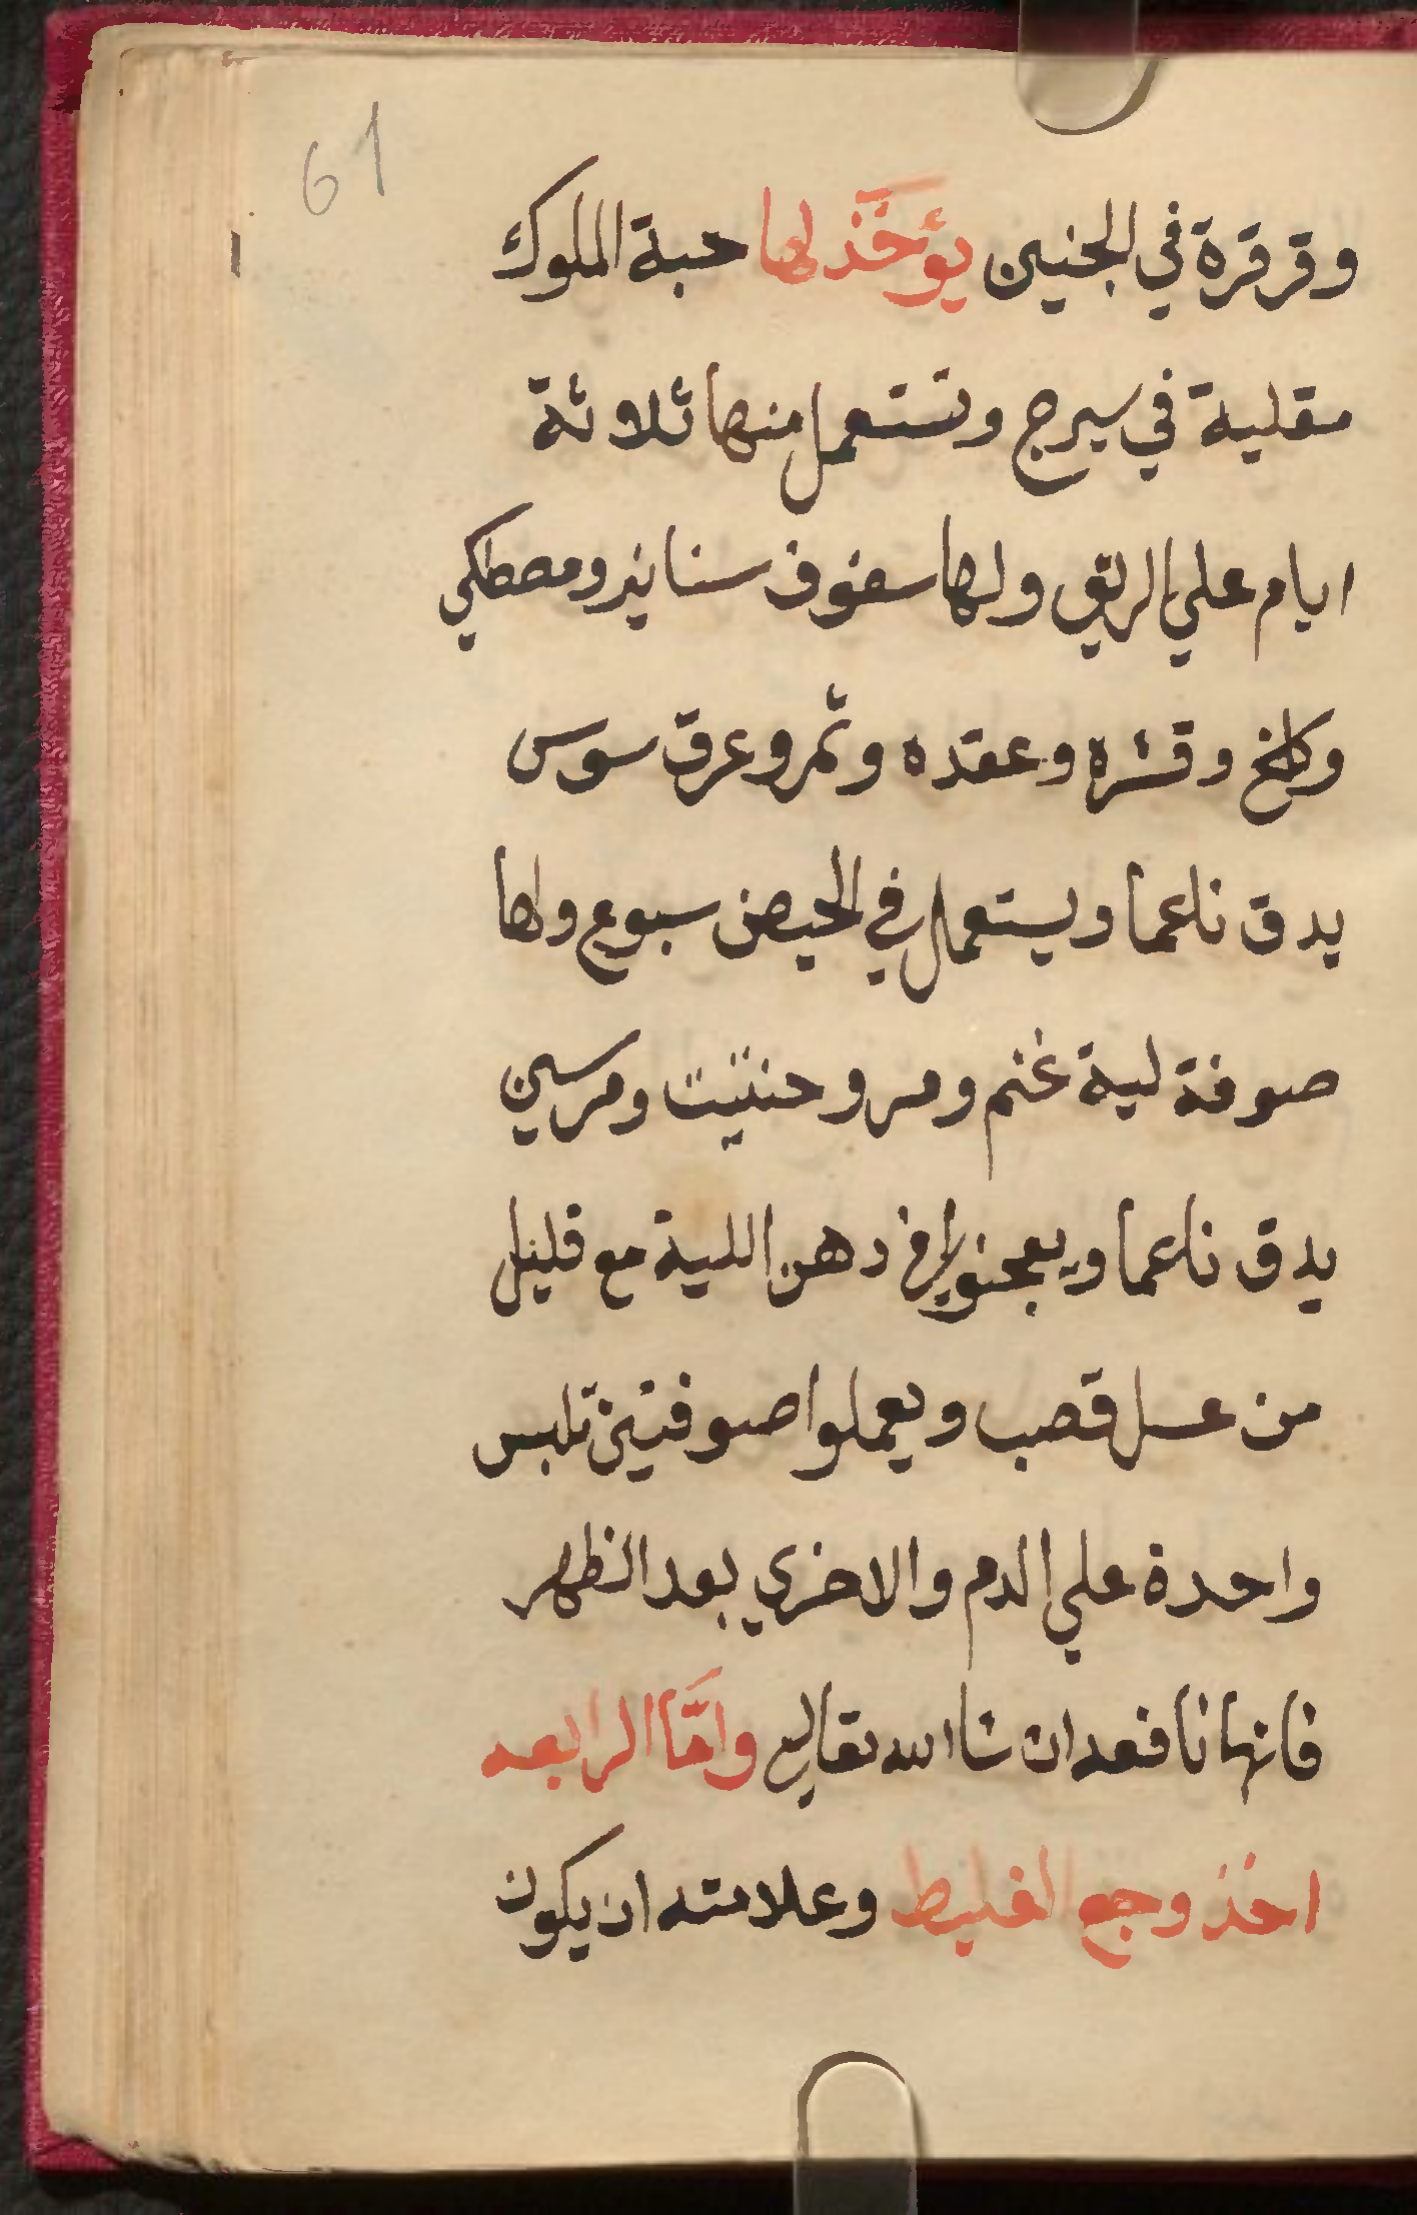 61
وقرقرة في الجنبين يؤخذ لها حبة الملوك
مقلية في سيرج وتستعمل منها ثلاثة
ايام علي الريق ولها سفوف سنا ومصطكي
وكلخ وقشره وعقده وثمر وعرق سوس
يدق ناعما ويستعمل في الحيض سبوع ولها
صوفة لية غنم ومر وحنتيت ومرسين
يدق ناعما ويعجنوا في دهن اللية مع قليل
من عسل قصب ويعملوا صوفتين تلبس
واحدة علي الدم والاخري بعد الظهر
فانها نافعه ان شا الله تعالي وامَّا الرابعه
اخذ وجع الغليط وعلامته ان يكون